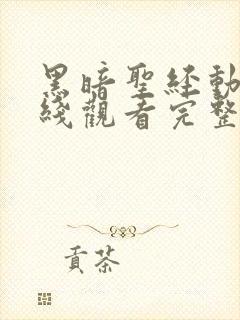 黑暗聖経動
綫觀看完整
貢茶